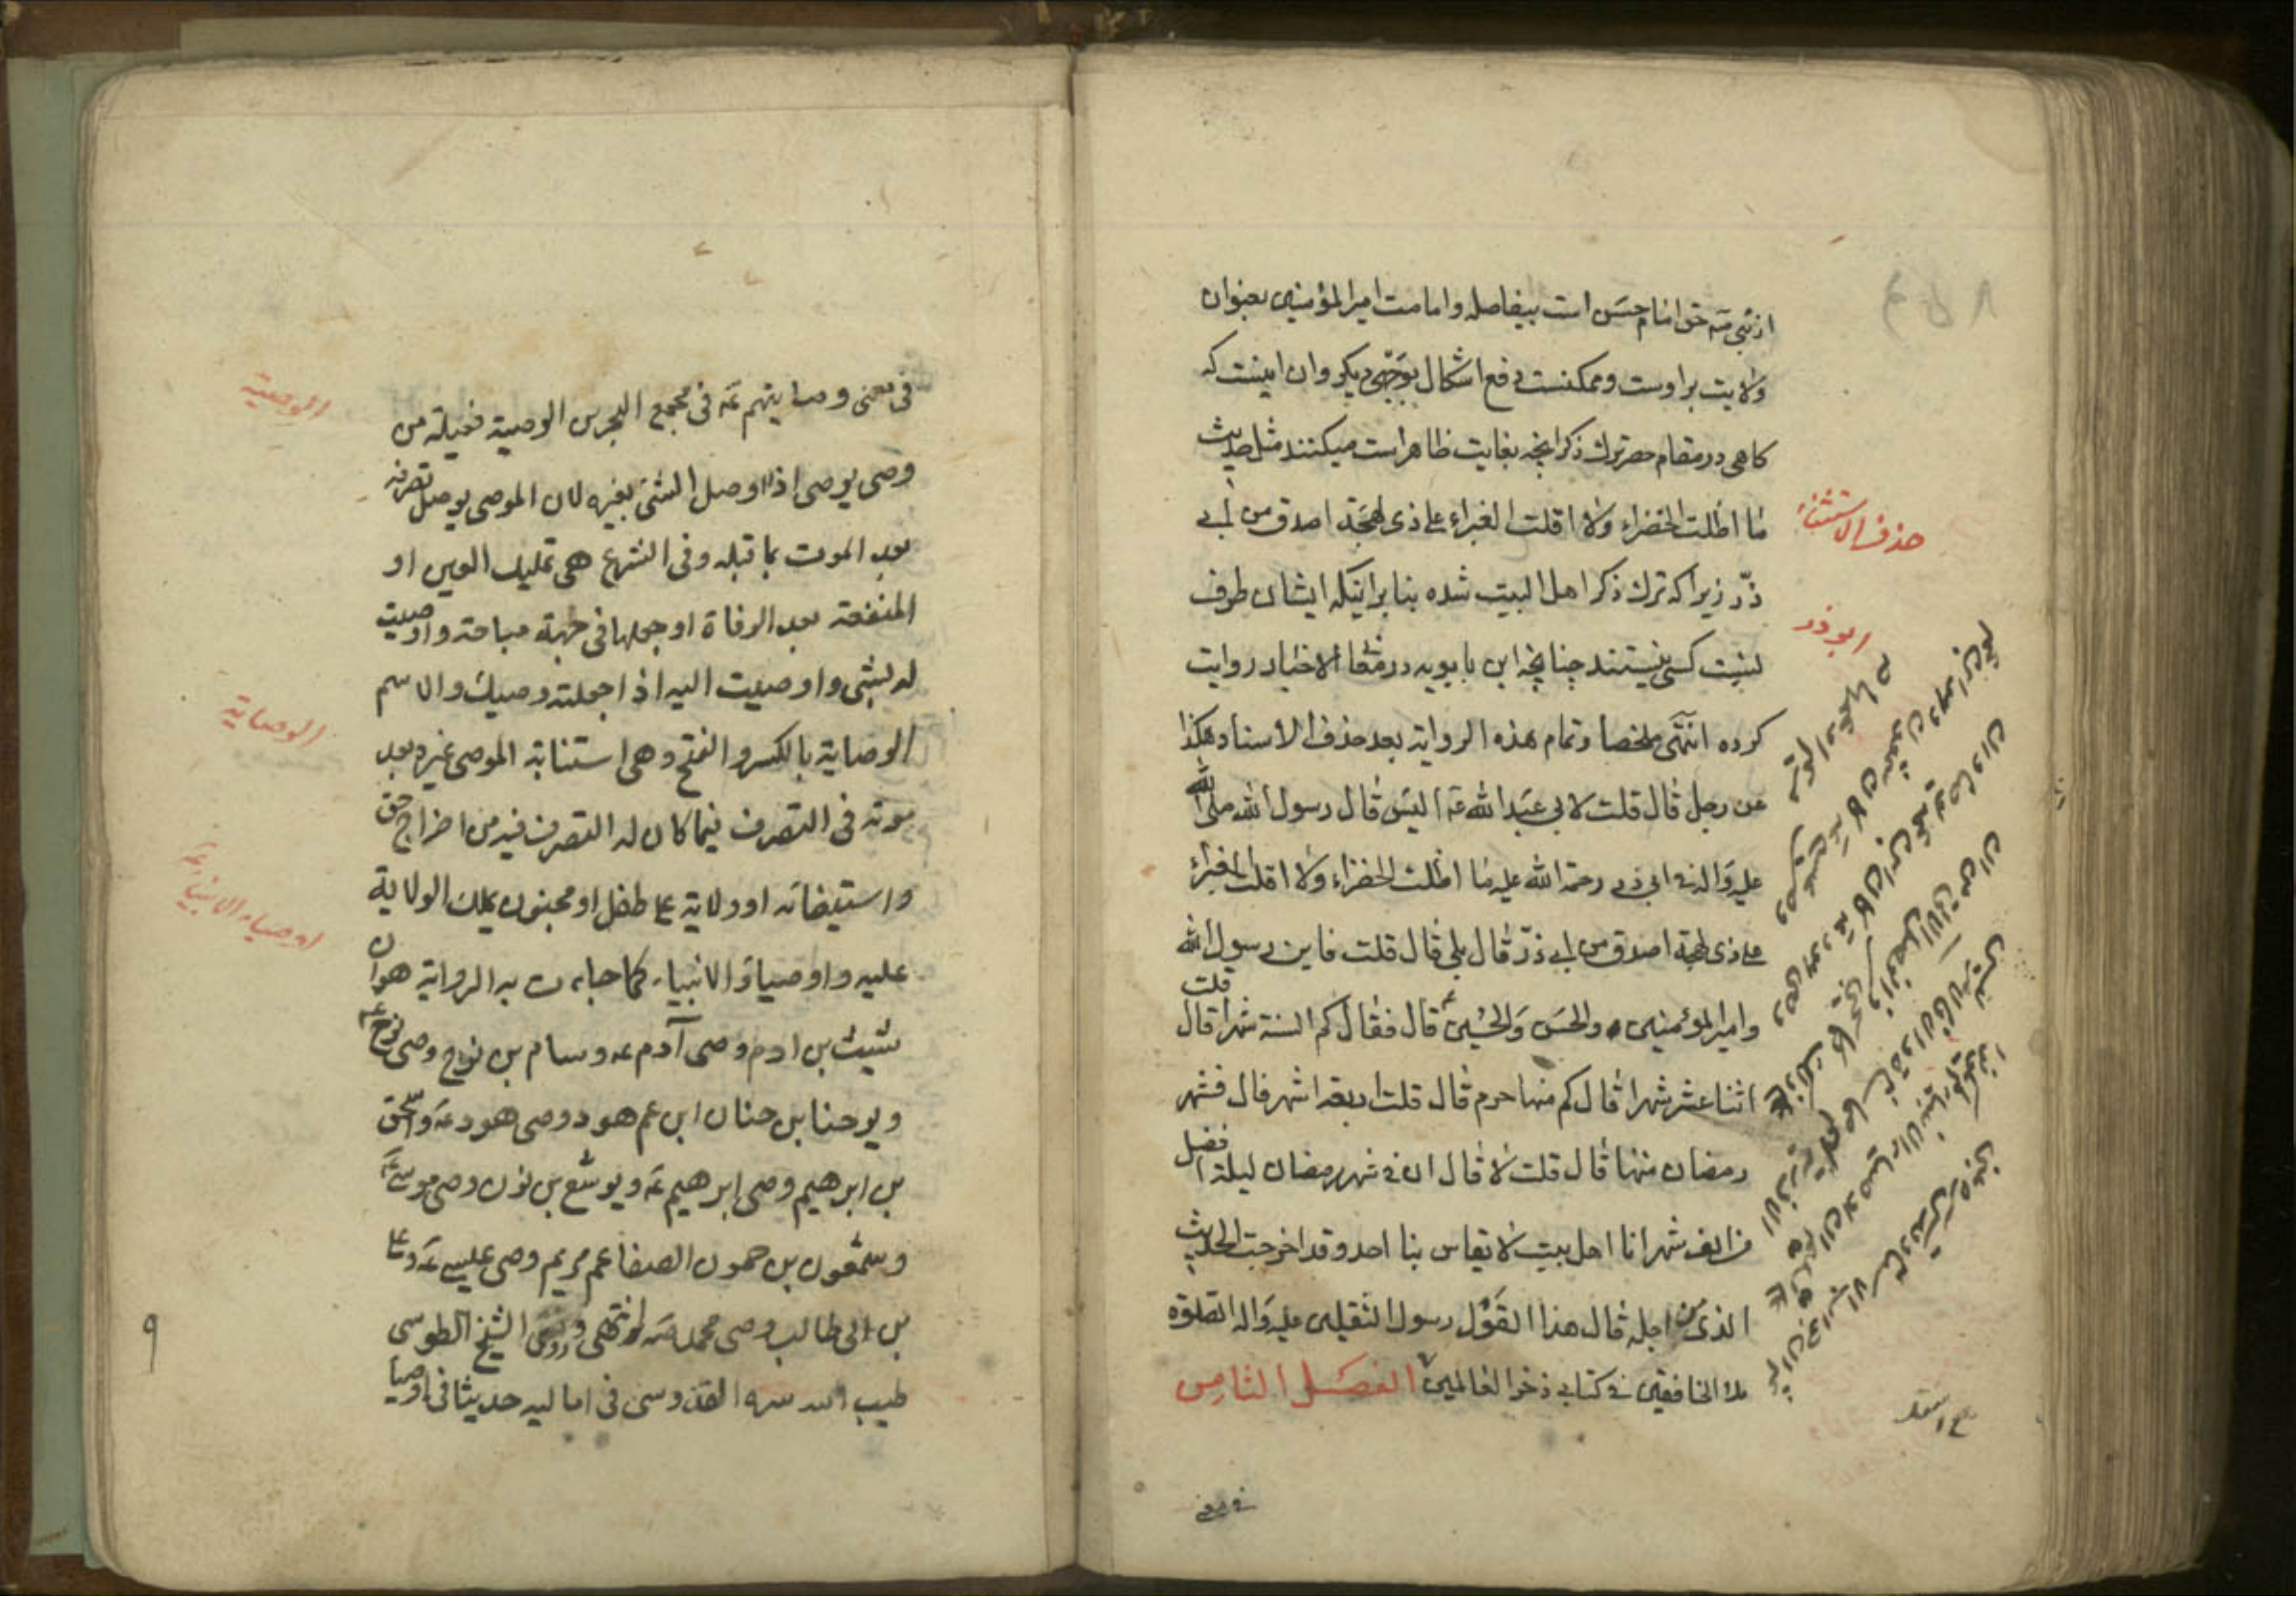 از نبی صَه حق امام حسَن است بیفاصله وامامت امیرالمؤمنین بعنوان
ولایت براوست وممکنست دفع اشکال بوَجهی دیکر وان اینست که
کاهی درمقام حصر ترك ذکر انچه بغایت ظاهراست میکنند مثل حدیث
ما اظلت الخضراء ولا اقلت الغبراء علی ذی لهجَة اصدق من ابی
ذرّ زیرا که ترك ذکر اهل البیت شده بنابرانیکه ایشان طرف
نسبت کسی نیستند چنانچه ابن بابویه در معانی الاخبار روایت
کرده انتهَی ملخصا وتمام هذه الروایة بعد حذف الاسناد هکذا
عن رجل قال قلت لابی عبَدالله عَه الیسَ قال رسول الله صلی الله
علیه وَاله فی ابی ذر رحمة الله علیه ما اظلت الخضراء ولا اقلت الغبراء
علی ذی لهجة اصدق من ابی ذرّ قال بلی قال قلت فاین رسول الله
وامیرالمؤمنین والحسَن وَالحسُین قال فقال کم السنة شهرا قال قلت
اثناعشر شهرا قال کم منها حرم قال قلت اربعة اشهر قال فشهر
رمضان منها قال قلت لا قال ان فی شهر رمضان لیلة افضل
من الف شهر انا اهل بیت لا یقاس بنا احد وقد اخرجت الحدیث
الذی من اجله قال هذا القَوْل رسول الثقلین علیه وَاله الصلوة
ملا الخافقین فی کتابی ذخر العالمین الفصَل الثامِن
فی معنی
حذف الاستثناء
ابوذر
فی معنی وصایتهم عَه فی مجمع البحرین الوصیة فعیلة من
وصی یوصی اذا اوصل الشئ بغیره لان الموصی یوصل تصرفه
بعد الموت بما قبله وفی الشرع هی تملیك العین او
المنفعة بعد الوفاة او جعلها فی جهة مباحة واوصیت
له بشئ واوصیت الیه اذا جعلته وصیك والاسم
الوصایة بالکسر والفتح وهی استنابة الموصی غیره بعد
موته فی التصرف فیما کان له التصرف فیه من اخراج حق
واستیفائه او ولایة علی طفل او مجنون یملك الولایة
علیه واوصیاء الانبیاء کما جاءت به الروایة هو ان
شیث بن ادم وصی آدم عه وسام بن نوح وصی نوح عَه
ویوحنا بن حنان ابن عم هود وصی هود عَه واسحق
بن ابرهیم وصی ابرهیم عَه ویوشع بن نون وصی موسی عَه
وشمعون بن حمون الصفا عم مریم وصی عیسی عَه وعلی
بن ابی طالب وصی محمد صَه انتهی وروی الشیخ الطوسی
طیب الله سره القدوسی فی امالیه حدیثا فی اوصیا
الوصیة
الوصایة
اوصیاء الانبیاء
۹